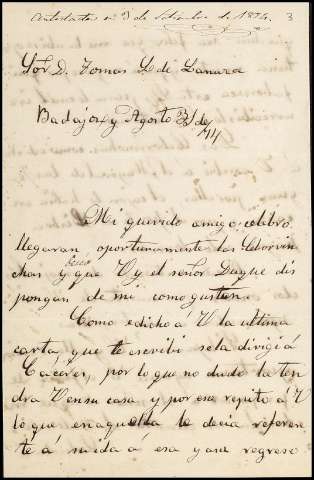 Contestada en 3 de Setiembre de 1874. 3
Sor D. Tomas S. de Lanuza
Badajoz y Agosto 31 de /74
Mi querido amigo; celebro
llegaran oportunamente los
y que V y el señor Duque dis
pongan de mi como gusten.
Como edicho á V la ultima
carta, que te escribi se la dirigí á
Caceres, por lo que no dudo la ten
dra V en su casa y por eso repito á V
lo que en aquella le decia referen
te á mi ida á esa y a su regreso